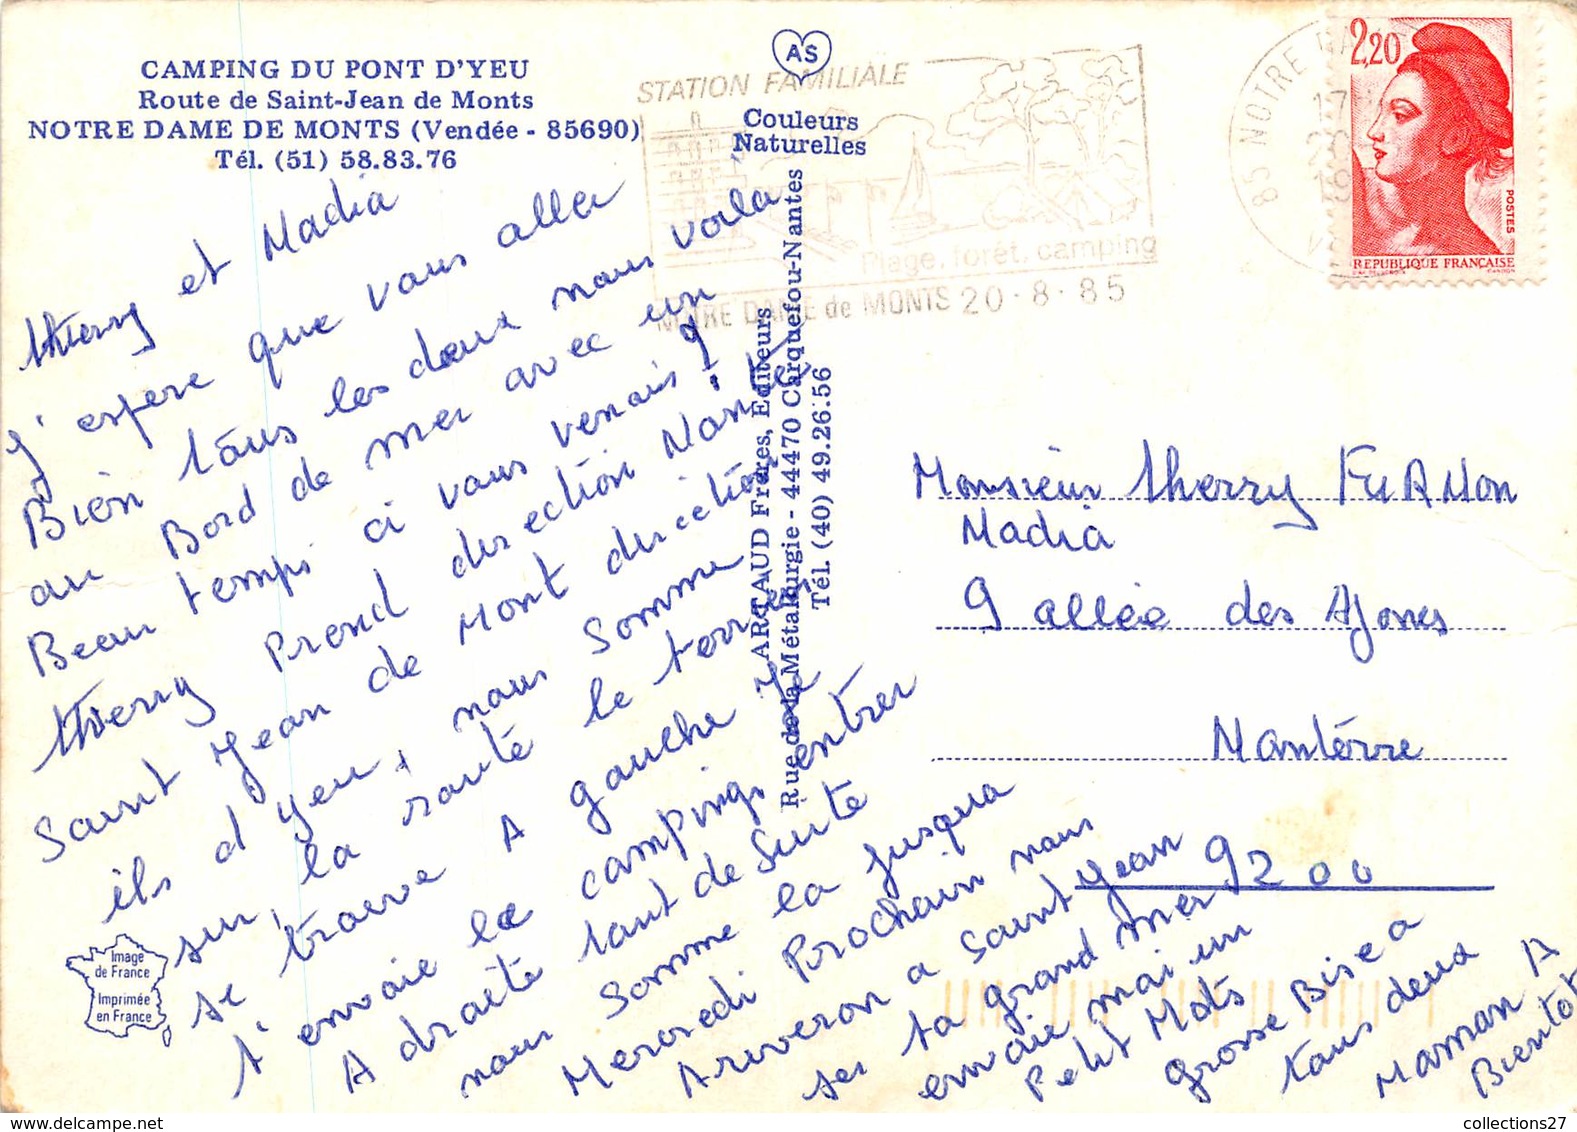 CAMPING DU PONT D'YEU
Route de Saint-Jean de Monts
NOTRE DAME DE MONTS (Vendée - 85690)
Tél. (51) 58.83.76
AS
Couleurs
Naturelles
STATION FAMILIALE
Plage, forêt, camping
NOTRE DAME de MONTS 20-8-85
85 NOTRE DA
17
20
19
2,20
POSTES
REPUBLIQUE FRANCAISE
thierry et Nadia
J'espere que vous aller
Bien tous les deux nous voila
au Bord de mer avec un
Beau temps ci vous venais
thierry Prend direction Nante
Saint Jean de Mont direction
ils d yeu, nous Somme
sur la routé le terrer
se trouve A gauche Je
t'envoie le campings entrer
A droite tout de Suite
nous Somme la jusqua
Mercredi Prochain nous
Ariveron a Saint Jean
ses ta grand mer
envoie mai un
Petit Mots
Grosse Bise a
tous deux
Maman A
Bientot
ARTAUD Frères, Editeurs
Rue de la Métallurgie - 44470 Carquefou-Nantes
Tél. (40) 49.26.56
Monsieur therry
Nadia
9 allée des Ajones
Nantérre
9200
Image
de France
Imprimée
en France
collections27